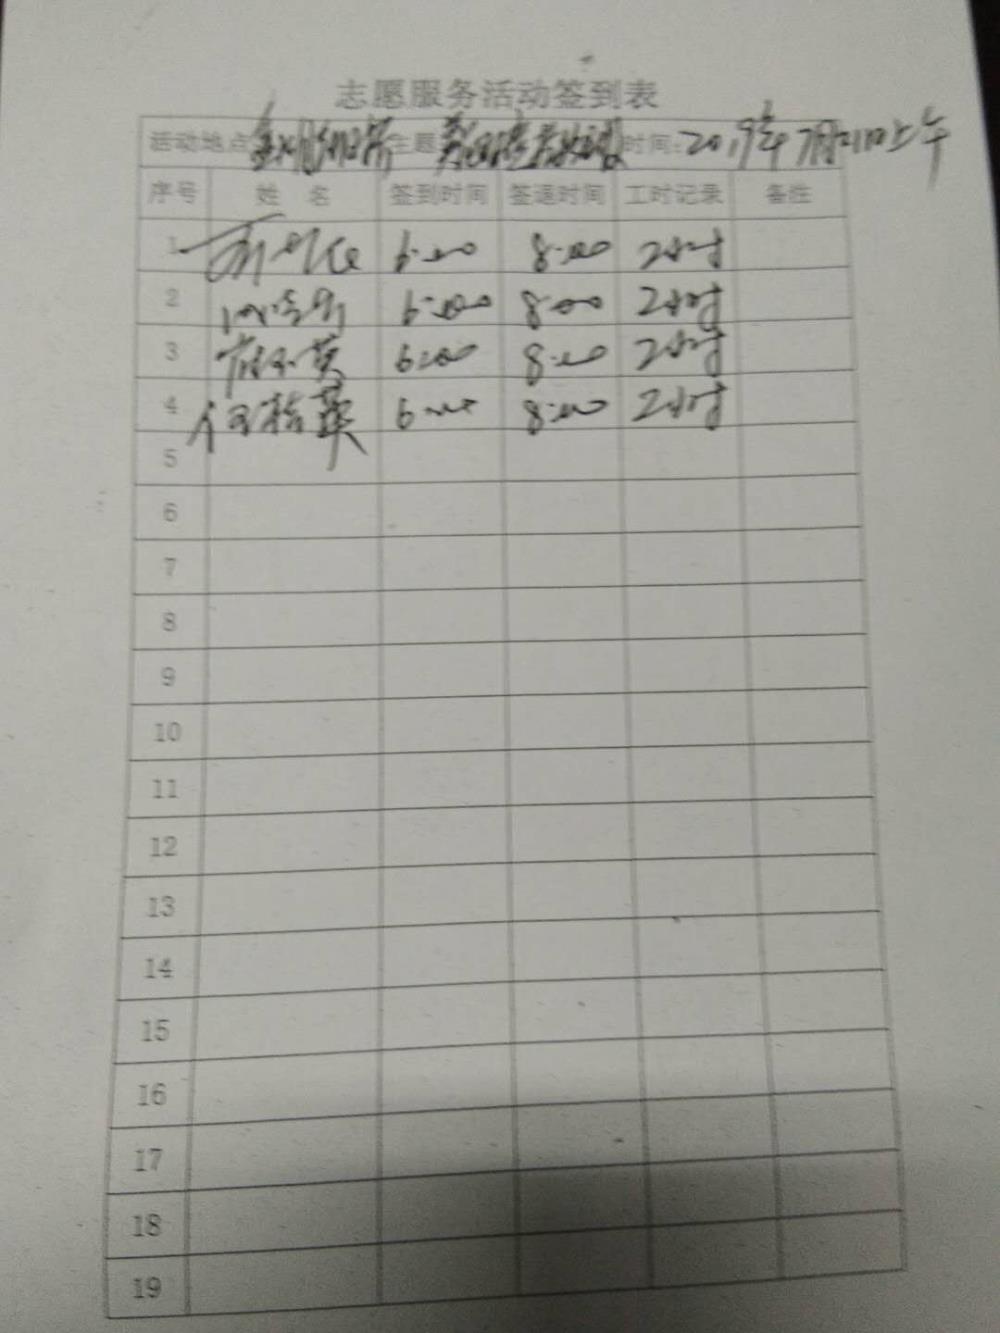 志愿服务活动签到表
活动地点 主题 时间:2019年7月21日上午
序号 姓 名 签到时间 签退时间 工时记录 备注
1 6:00 8:00 2小时
2 6:00 8:00 2小时
3 英 6:00 8:00 2小时
4 何桂英 6:00 8:00 2小时
5
6
7
8
9
10
11
12
13
14
15
16
17
18
19